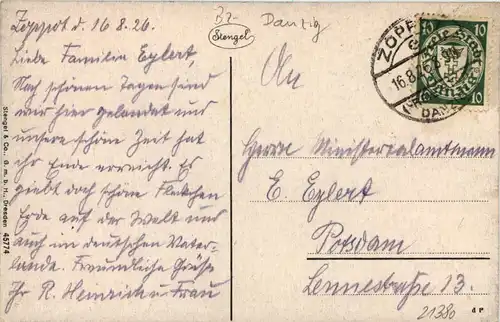 Zoppot d. 16.8.26.
Liebe Familien Eylert,
Nach schönen Tagen sind
wir hier gelandet und
unsere schöne Zeit hat
ihr Ende erreicht. Es
giebt doch schöne Fleckchen
Erde auf der Welt und
auch im deutschen Vater-
lande. Freundliche Grüße
Ihr R. Heinrich u. Frau
Stengel & Co., G. m. b. H., Dresden 45774
Stengel
Danzig
ZOPPOT
16.8.
10 10
An
Herrn Ministerialamtmann
E. Eylert
Potsdam
Lennéstraße 13.
21380